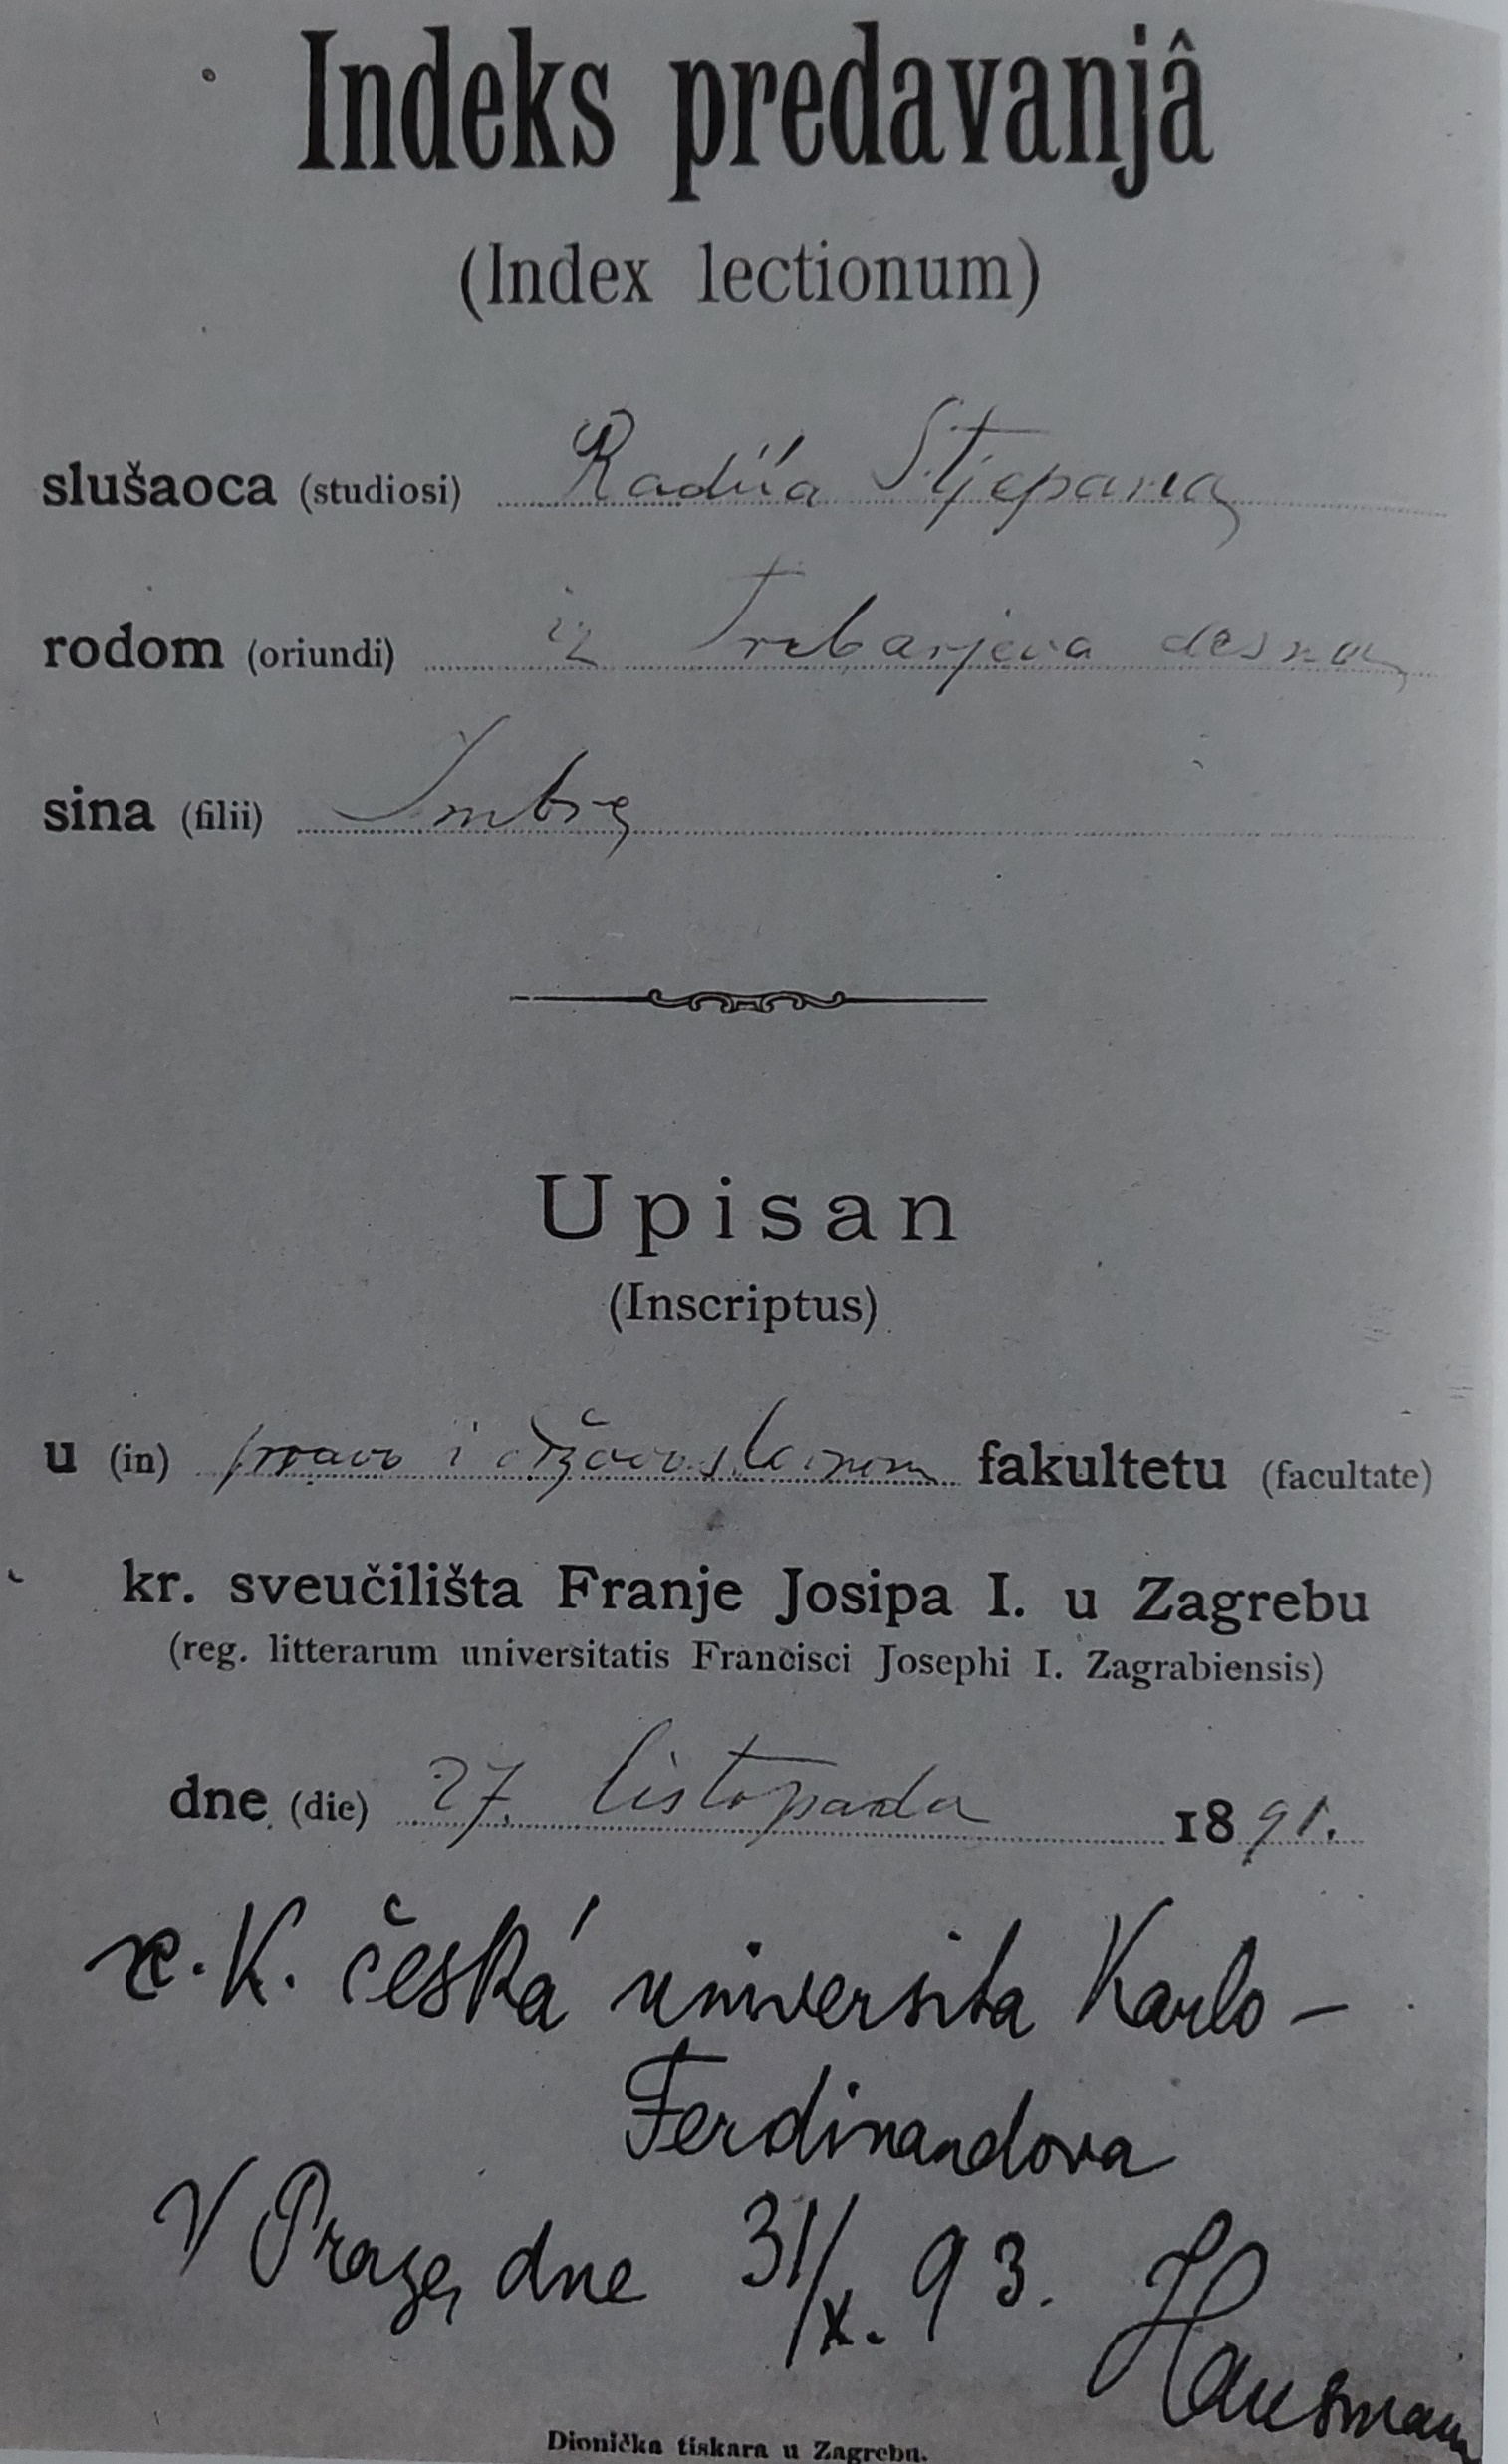 Indeks predavanjâ
(Index lectionum)
slušaoca (studiosi) Radića Stjepana
rodom (oriundi) iz Trebarjeva desna
sina (filii) Imbre
Upisan
(Inscriptus)
u (in) pravo i državoslovnom fakultetu (facultate)
kr. sveučilišta Franje Josipa I. u Zagrebu
(reg. litterarum universitatis Francisci Josephi I. Zagrabiensis)
dne (die) 27. listopada 1891.
K. česká universita Karlo-
Ferdinandova
V Praze, dne 31/X. 93.
Dionička tiskara u Zagrebu.